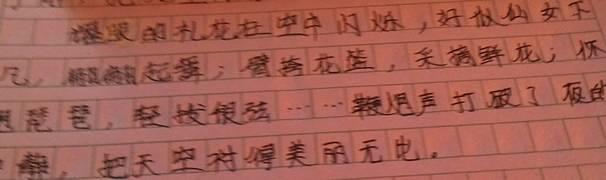 璀璨的礼花在空中闪烁，好似仙女下
凡，翩翩起舞；臂挎花篮，采摘鲜花；怀
琵琶，轻拨银弦……鞭炮声打破了夜的
静，把天空衬得美丽无比。